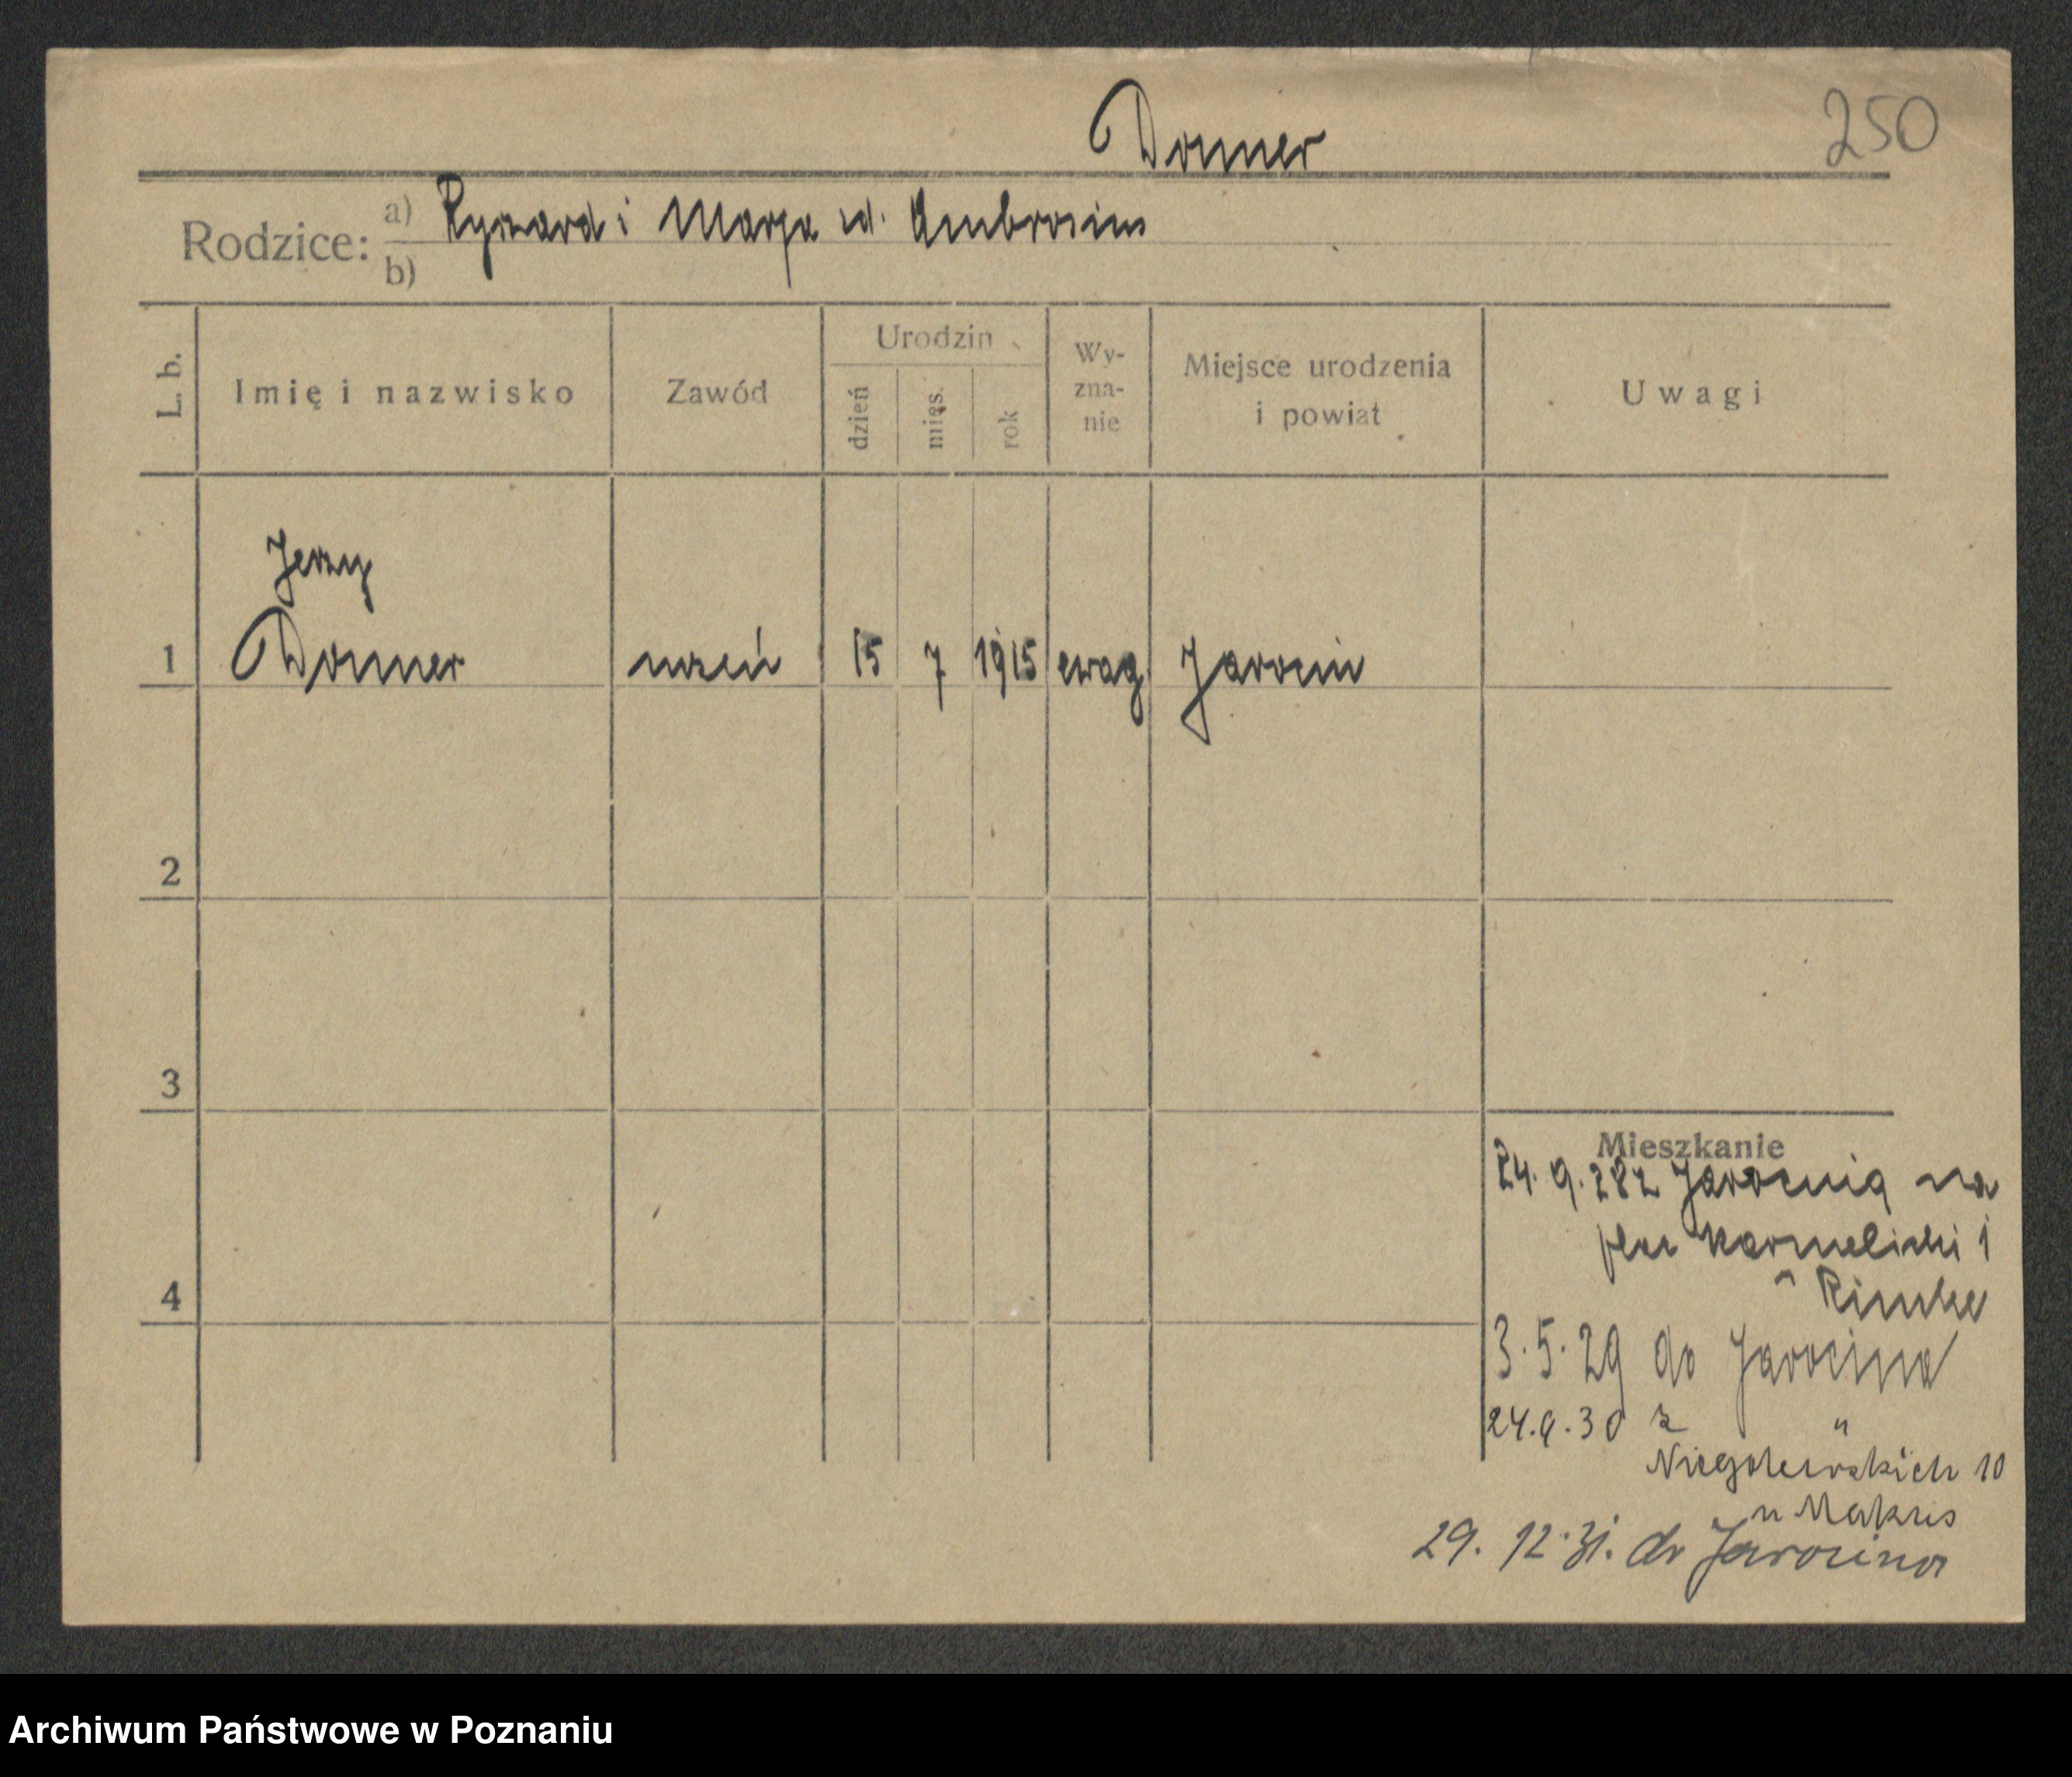 Donner
250
Rodzice: a) Ryszard i Marja zd. Ambrosius
b)
L. b.
Imię i nazwisko
Zawód
Urodzin
dzień
mies.
rok
Wy-
zna-
nie
Miejsce urodzenia
i powiat
Uwagi
Jerzy
1 Donner uczeń 15 7 1915 ewag. Jarocin
2
3
4
Mieszkanie
24. 9. 28 z Jarocina na
plac Karmelicki 1
3. 5. 29 do Jarocina
24. 9. 30 z "
Niegolewskich 10
u
29. 12. 31. do Jarocina
Archiwum Państwowe w Poznaniu